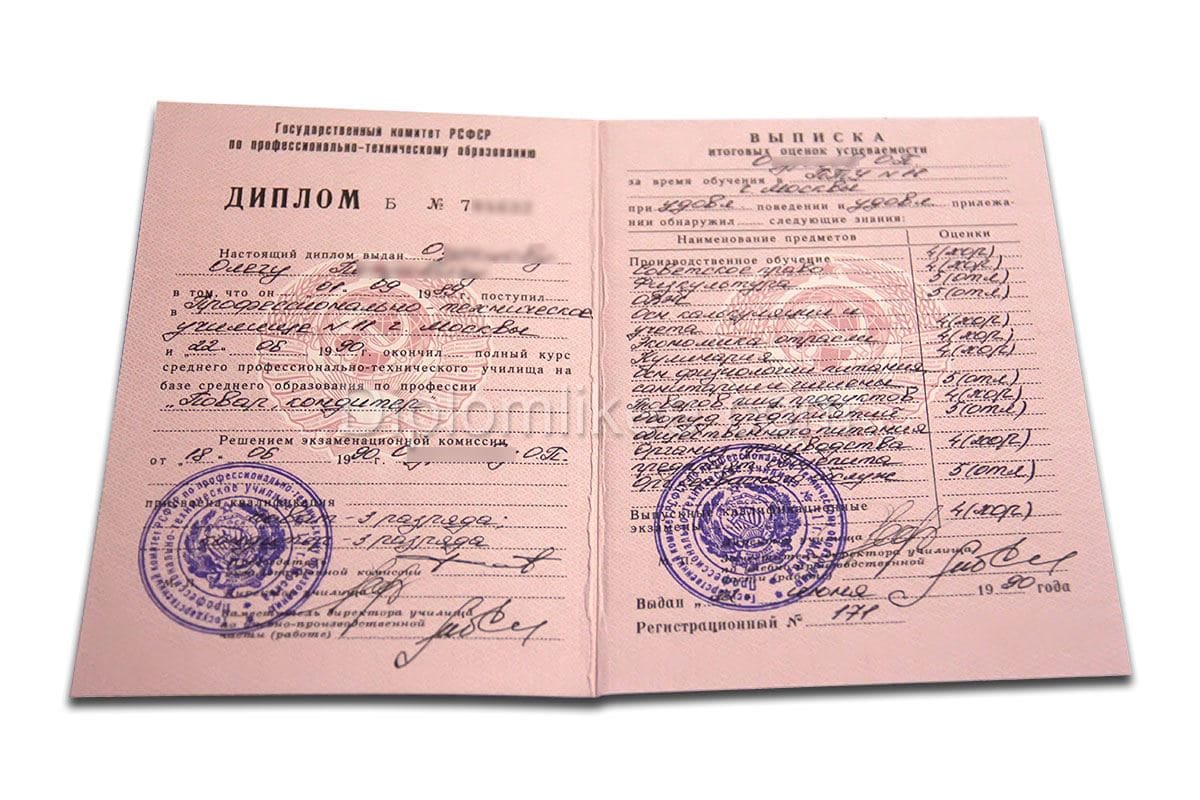 Государственный комитет РСФСР
по профессионально-техническому образованию
ДИПЛОМ Б № 7
Настоящий диплом выдан О
Олегу П
в том, что он „01“ 09 1989г. поступил
в Профессионально техническое
училище N 11 г. Москвы
и „22“ 06 1990г. окончил полный курс
среднего профессионально-технического училища на
базе среднего образования по профессии
„Повар, кондитер“
Решением экзаменационной комиссии,
от „18“ 06 1990г. О О.П.
присвоена квалификация
повар - 3 разряда;
кондитер - 3 разряда
Председатель
экзаменационной комиссии
Директор училища
Заместитель директора училища
по учебно-производственной
части (работе)
ВЫПИСКА
итоговых оценок успеваемости
О О.П.
за время обучения в ПТУ N 11
г. Москвы
при удовл поведении и удовл прилежа-
нии обнаружил следующие знания:
Наименование предметов Оценки
Производственное обучение 4(хор.)
Советское право 4(хор.)
Физкультура 5(отл.)
5(отл.)
Осн калькуляции и
учета 4(хор.)
Экономика отрасли 4(хор.)
Кулинария 4(хор.)
Осн физиологии питания
санитарии и гигиены 5(отл.)
Товаров пищ продуктов 4(хор.)
Оборуд предприятий 5(отл.)
общественного питания
Организ производства 4(хор.)
5(отл.)
Выпускные квалификационные
экзамены 4(хор.)
Директор училища
Заместитель директора училища
по учебно-производственной
части (работе)
Выдан „22“ июня 1990 года
Регистрационный №
Государственный комитет РСФСР по профессионально-техническому образованию